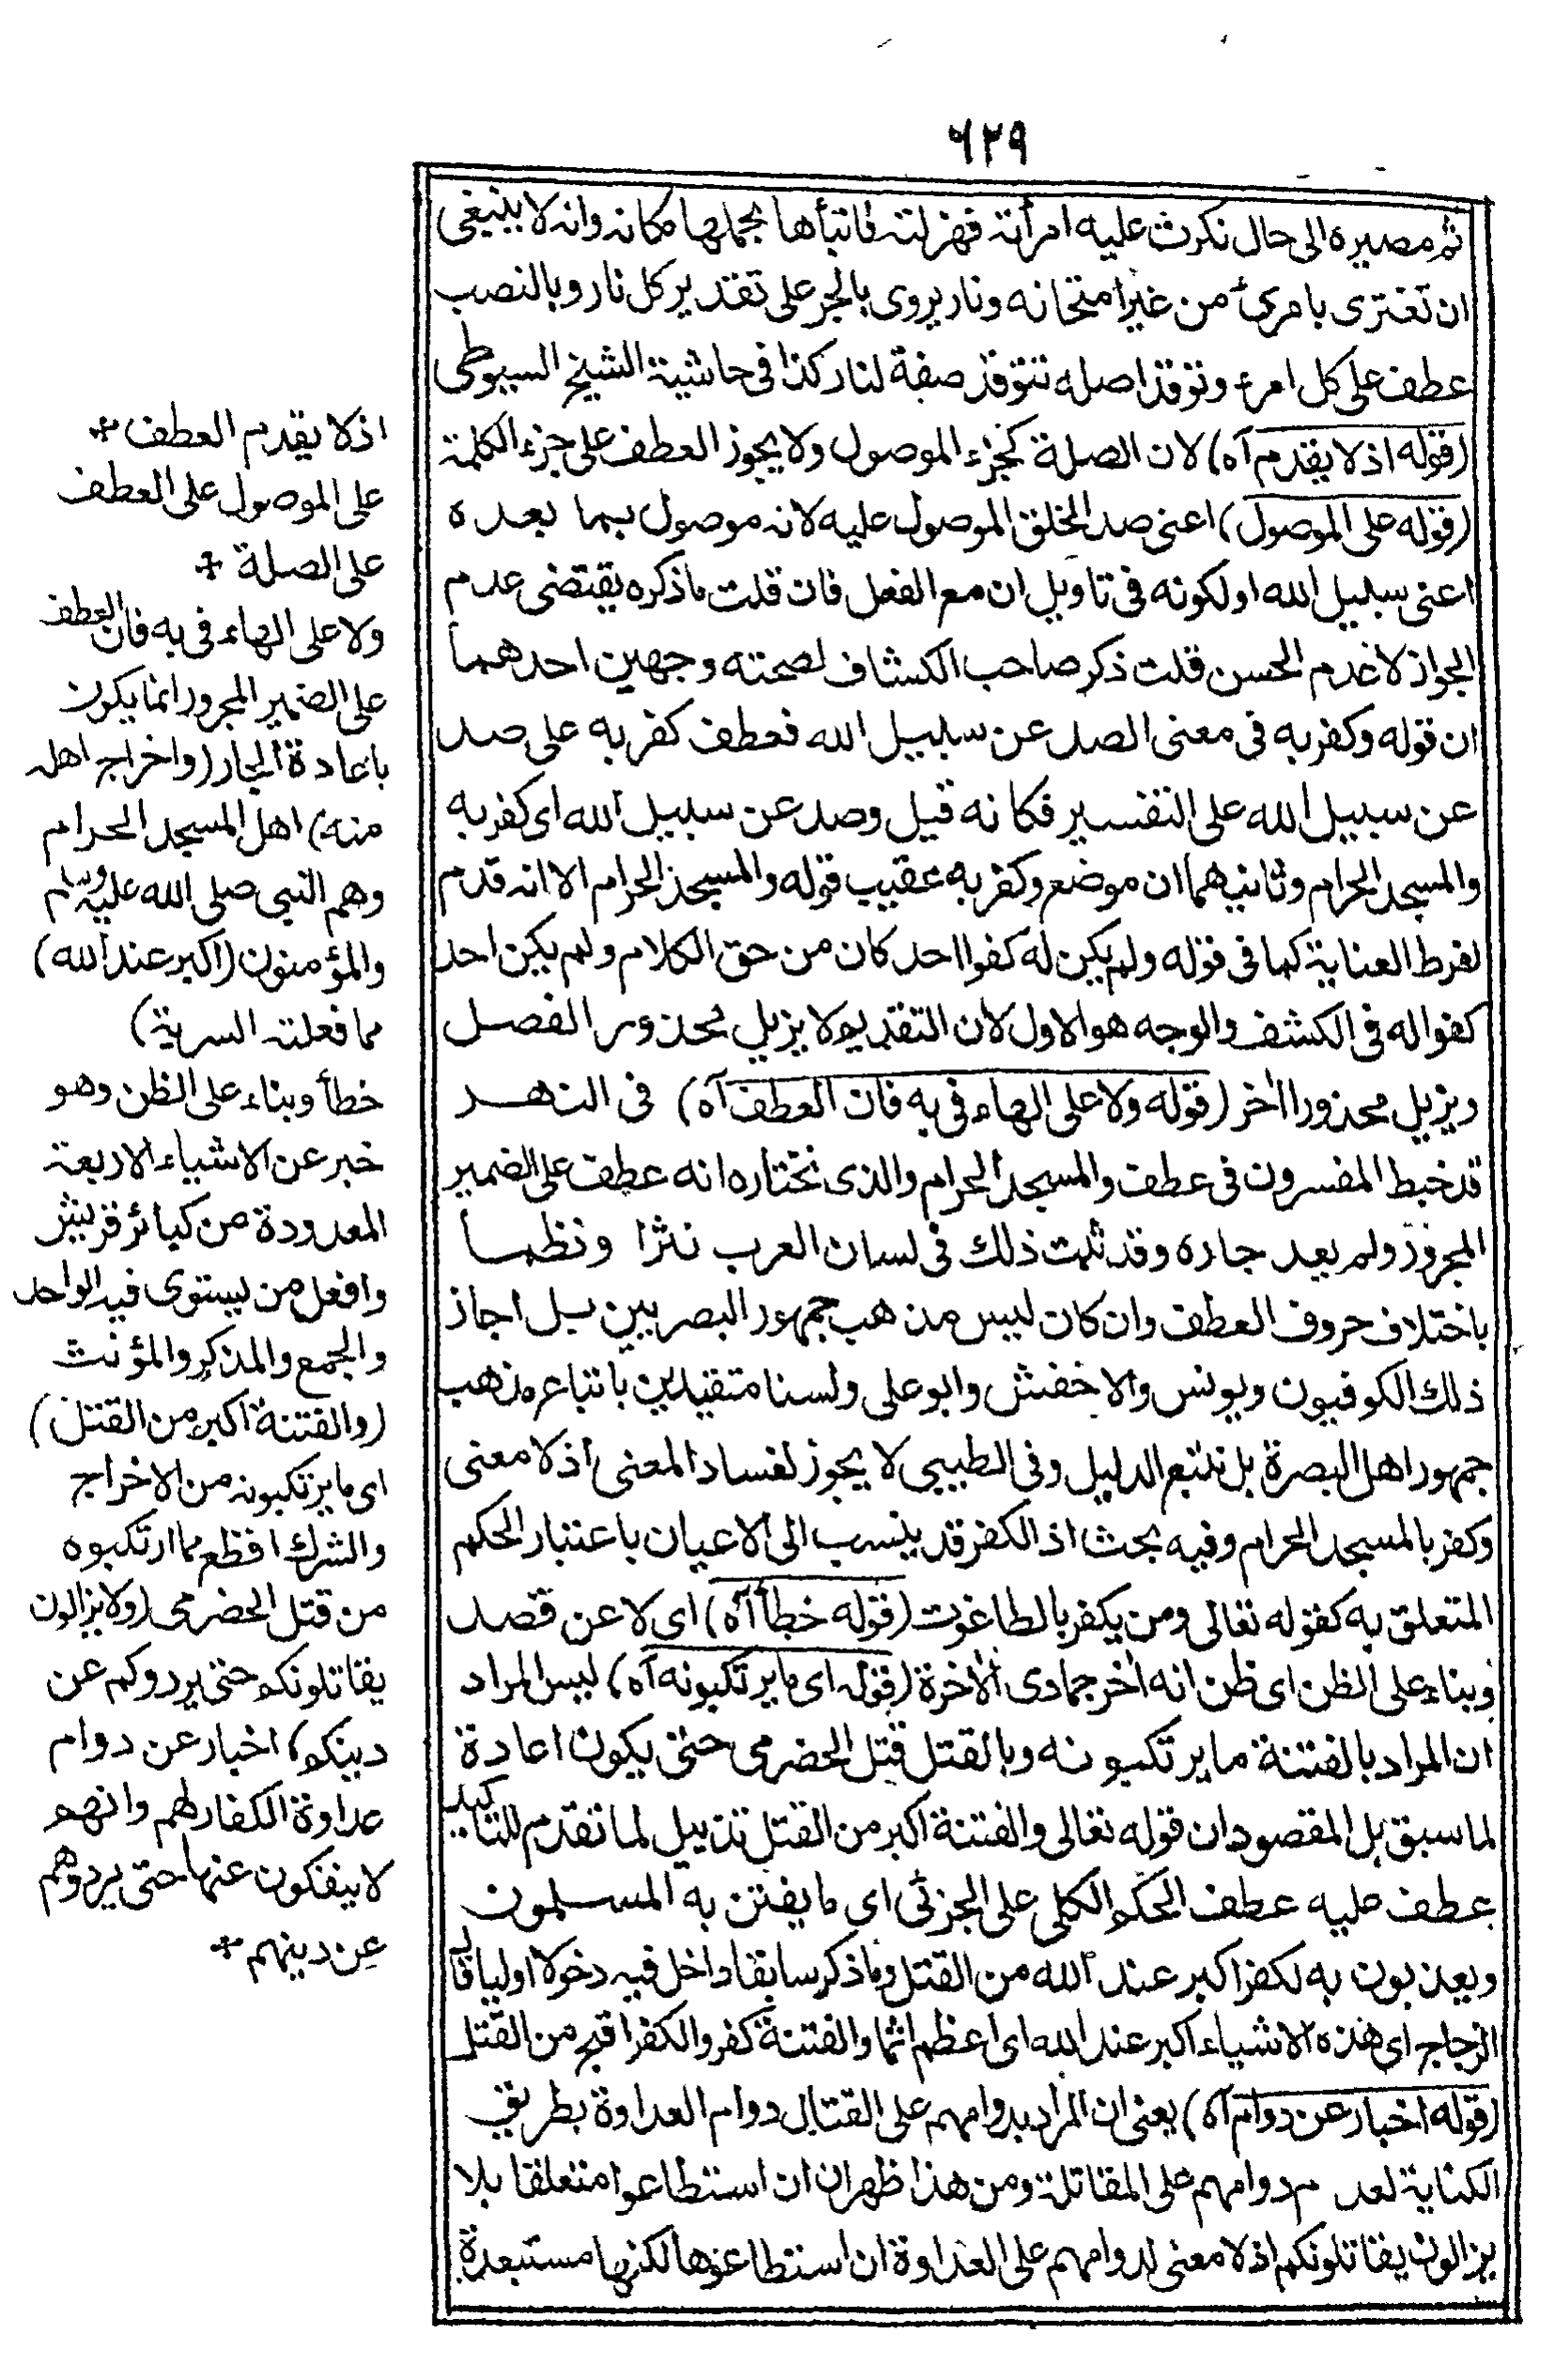 ٦٢٩
ثم مصيره الى حال نكرت عليه امرأته فهزلته فانبأها بجهلها مكانه وانه لا ينبغى
ان تغترى بامرئ من غير امتحانه ونار يروى بالجر على تقدير كل نار وبالنصب
عطف على كل امرء وتوقد اصله تتوقد صفة لنار كذا فى حاشية الشيخ السيوطى
(قوله اذ لا يقدم آه) لان الصلة كجزء الموصول ولا يجوز العطف على جزء الكلمة
(قوله على الموصول) اعنى صد الخلق الموصول عليه لانه موصول بما بعده
اعنى سبيل الله او لكونه فى تاويل ان مع الفعل فان قلت ما ذكره يقتضى عدم
الجواز لا عدم الحسن قلت ذكر صاحب الكشاف لصحته وجهين احدهما
ان قوله وكفر به فى معنى الصد عن سبيل الله فعطف كفر به على صد
عن سبيل الله على التفسير فكانه قيل وصد عن سبيل الله اى كفر به
والمسجد الحرام وثانيهما ان موضع وكفر به عقيب قوله والمسجد الحرام الا انه قدم
لفرط العناية كما فى قوله ولم يكن له كفوا احد كان من حق الكلام ولم يكن احد
كفوا له فى الكشف والوجه هو الاول لان التقديم لا يزيل محذور الفصل
ويزيل محذورا اخر (قوله ولا على الهاء فى به فان العطف آه) فى النهر
قد خبط المفسرون فى عطف والمسجد الحرام والذى نختاره انه عطف على الضمير
المجرور ولم يعد جاره وقد ثبت ذلك فى لسان العرب نثرا ونظما
باختلاف حروف العطف وان كان ليس مذهب جمهور البصريين بل اجاز
ذلك الكوفيون ويونس والاخفش وابو على ولسنا متقيدين باتباع مذهب
جمهور اهل البصرة بل نتبع الدليل وفى الطيبى لا يجوز لفساد المعنى اذ لا معنى
وكفر بالمسجد الحرام وفيه بحث اذ الكفر قد ينسب الى الاعيان باعتبار الحكم
المتعلق به كقوله تعالى ومن يكفر بالطاغوت (قوله خطأ آه) اى لا عن قصد
وبناء على الظن اى ظن انه اخر جمادى الاخرة (قوله اى ما يرتكبونه آه) ليس المراد
ان المراد بالفتنة ما يرتكبونه وبالقتل قتل الحضرمى حتى يكون اعادة
لما سبق بل المقصود ان قوله تعالى والفتنة اكبر من القتل تذييل لما تقدم للتاكيد
عطف عليه عطف الحكم الكلى على الجزئى اى ما يفتن به المسلمون
ويعذبون به لكفر اكبر عند الله من القتل وما ذكر سابقا داخل فيه دخولا اوليا قال
الزجاج اى هذه الاشياء اكبر عند الله اى اعظم اثما والفتنة كفر والكفر اقبح من القتل
(قوله اخبار عن دوام آه) يعنى ان المراد بدوامهم على القتال دوام العداوة بطريق
الكناية لعدم دوامهم على المقاتلة ومن هذا ظهر ان ان استطاعوا متعلقا بلا
يزالون يقاتلونكم اذ لا معنى لدوامهم على العداوة ان استطاعوها لكنها مستبعدة
اذ لا يقدم العطف
على الموصول على العطف
على الصلة
ولا على الهاء فى به فان العطف
على الضمير المجرور انما يكون
باعادة الجار (واخراج اهله
منه) اهل المسجد الحرام
وهم النبى صلى الله عليه وسلم
والمؤمنون (اكبر عند الله)
مما فعلته السرية)
خطأ وبناء على الظن وهو
خبر عن الاشياء الاربعة
المعدودة من كبائر قريش
وافعل من يستوى فيه الواحد
والجمع والمذكر والمؤنث
(والفتنة اكبر من القتل)
اى ما يرتكبونه من الاخراج
والشرك افظع مما ارتكبوه
من قتل الحضرمى (ولا يزالون
يقاتلونكم حتى يردوكم عن
دينكم) اخبار عن دوام
عداوة الكفار لهم وانهم
لا ينفكون عنها حتى يردوهم
عن دينهم